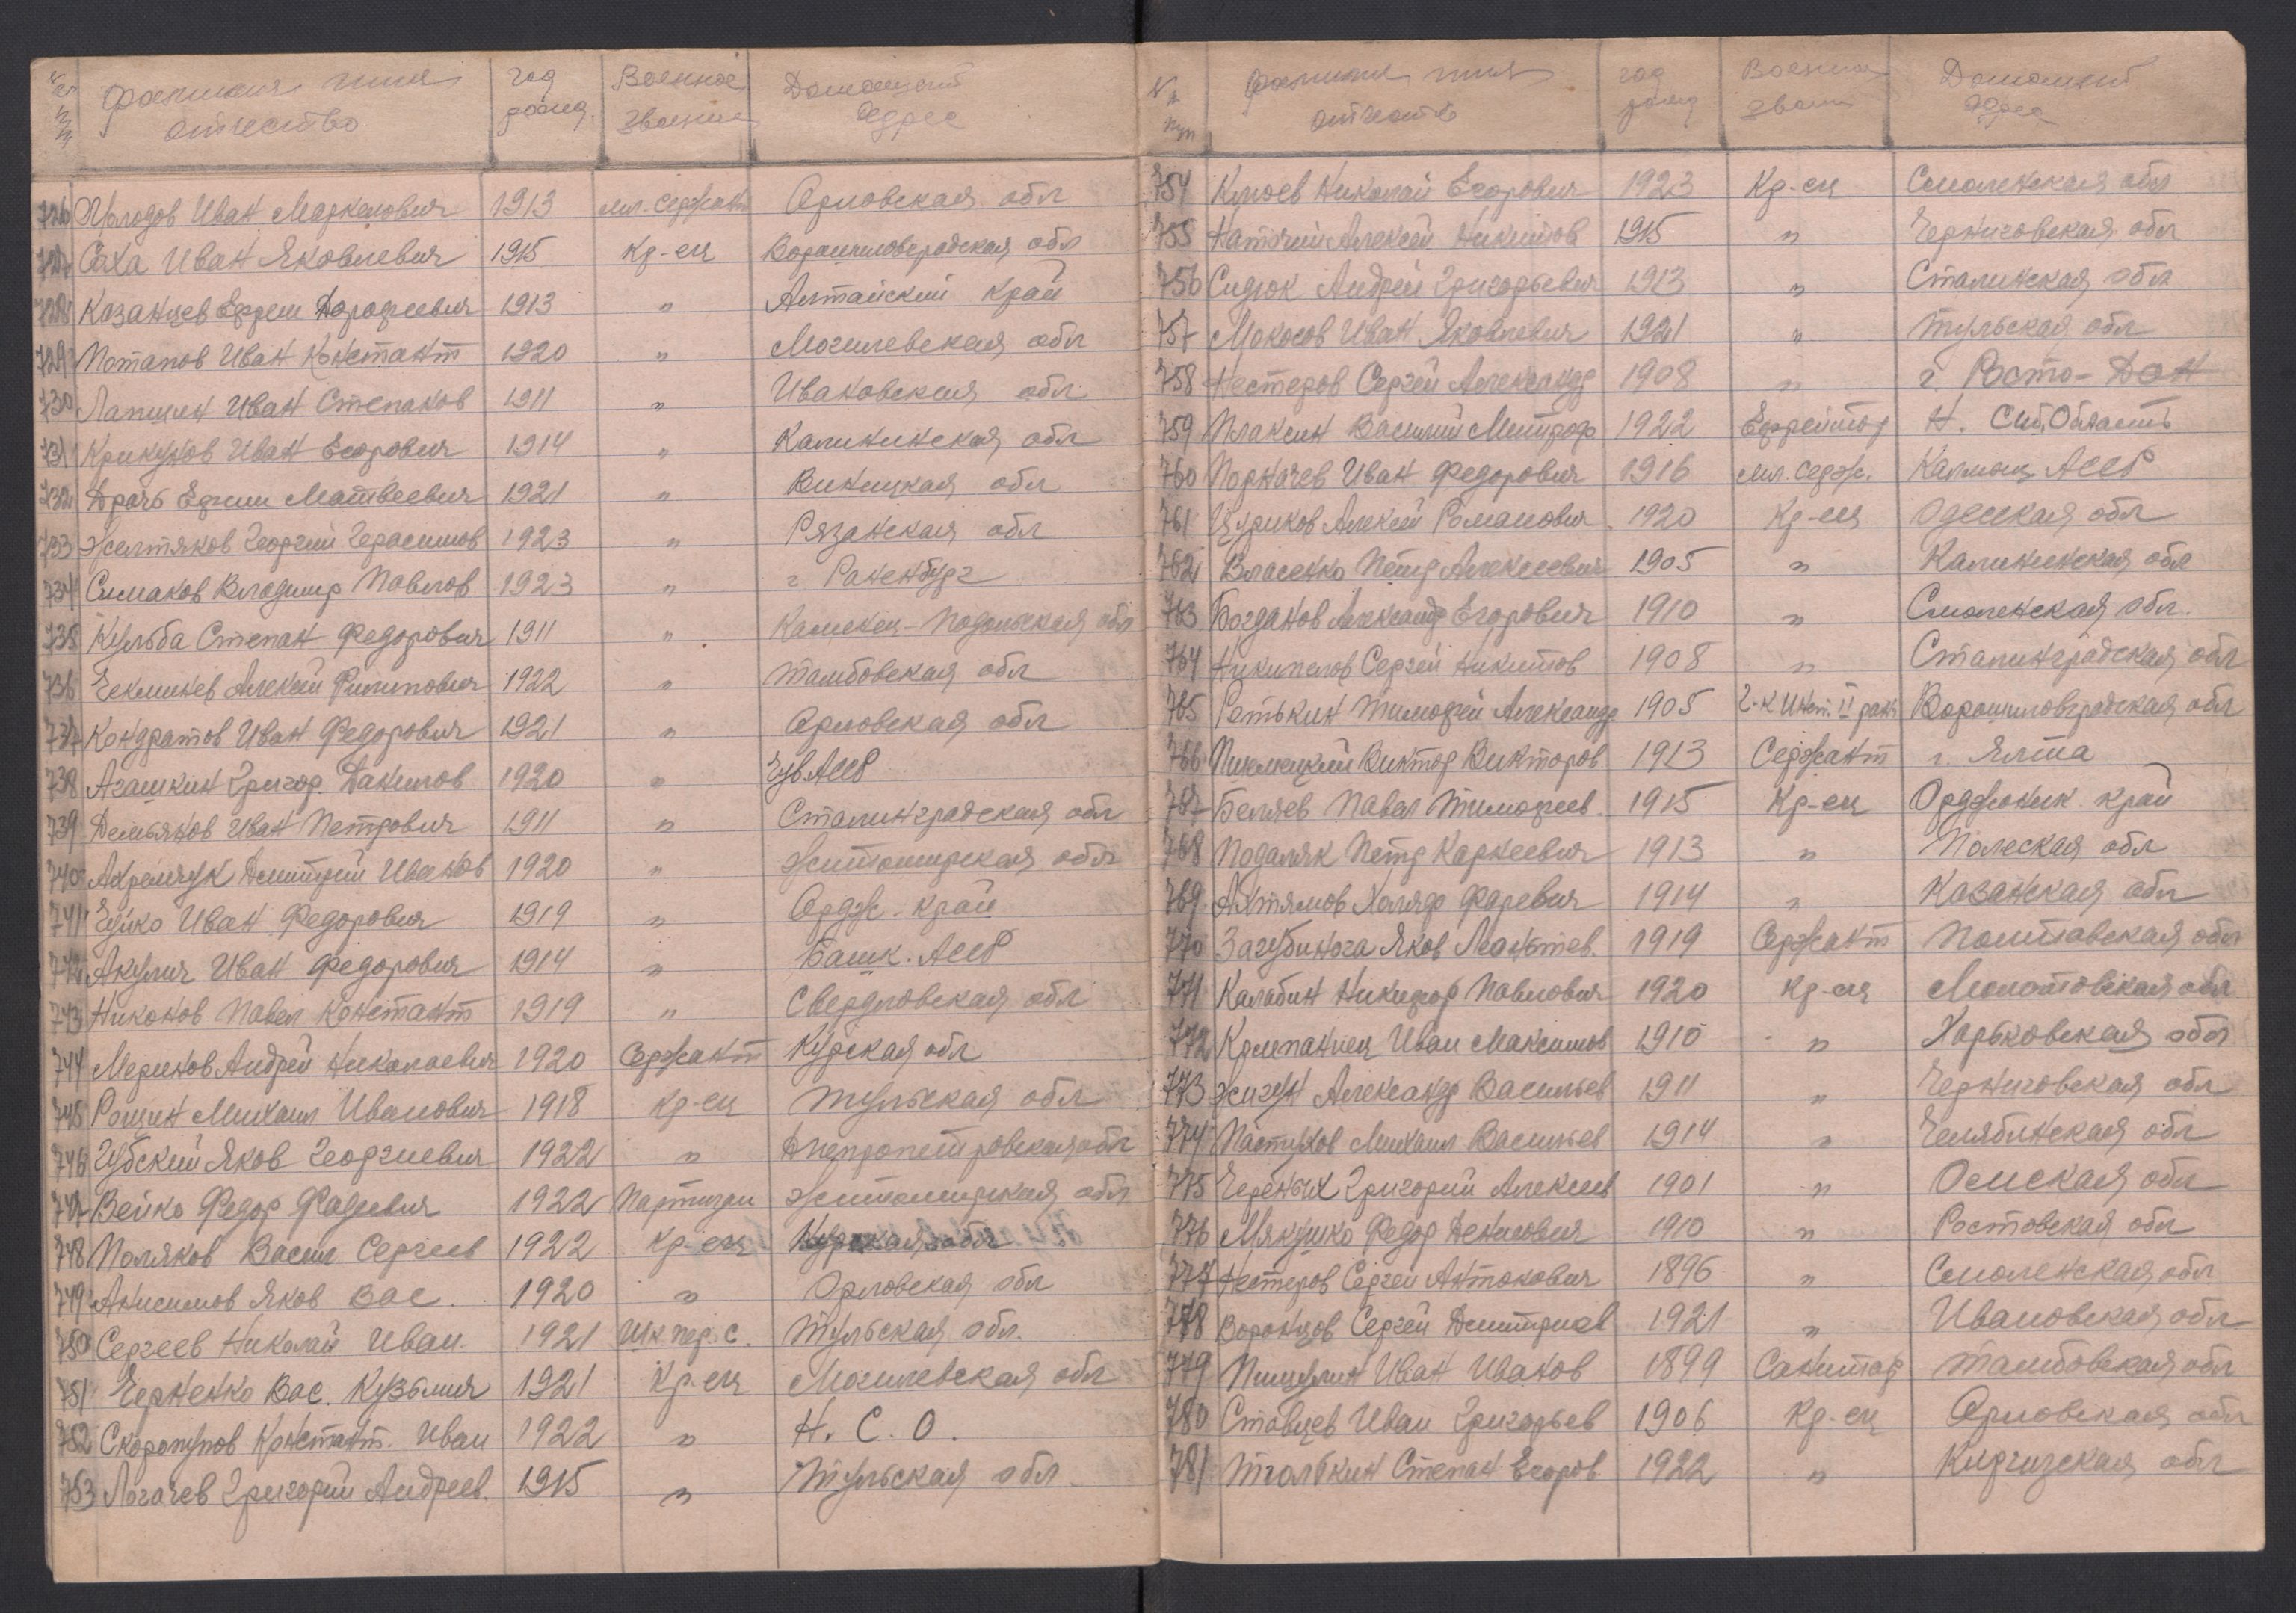 № п/п Фамилия имя отчество год рожд. Военное звание Домашний адрес
726 Иван Маркелович 1913 мл. сержант Орловская обл
727 Саха Иван Яковлевич 1915 Кр-ец Ворошиловградская обл
728 Казанцев Ефрем Дорофеевич 1913 " Алтайский край
729 Потапов Иван Констант 1920 " Могилевская обл
730 Лапшин Иван Степанов 1911 " Ивановская обл
731 Крикунов Иван Егорович 1914 " Калининская обл
732 Драчь Ефим Матвеевич 1921 " Виницкая обл
733 Желтяков Георгий Герасимов 1923 " Рязанская обл
734 Симаков Владимир Павлов 1923 " г Раненбург
735 Кульба Степан Федорович 1911 " Каменец-Подольская обл
736 Чеклинев Алексей Филипович 1922 " Тамбовская обл
737 Кондратов Иван Федорович 1921 " Орловская обл
738 Агашкин Григор. Данилов 1920 " Чув АССР
739 Демьянов Иван Петрович 1911 " Сталинградская обл
740 Ахремчук Дмитрий Иванов 1920 " Житомирская обл
741 Чуйко Иван Федорович 1919 " Ордж. край
742 Акулич Иван Федорович 1914 " Башк. АССР
743 Никонов Павел Констант 1919 " Свердловская обл
744 Меринов Андрей Николаевич 1920 Сержант Курская обл
745 Рощин Михаил Иванович 1918 Кр-ец Тульская обл
746 Губский Яков Георгиевич 1922 " Днепропетровская обл
747 Вейко Федор Фадеевич 1922 Партизан Житомирская обл
748 Поляков Васил Сергеев 1922 Кр-ец Курская обл
749 Анисимов Яков Вас. 1920 " Орловская обл
750 Сергеев Николай Иван. 1921 Шк пер. с. Тульская обл.
751 Черненко Вас. Кузьмич 1921 Кр-ец Могилевская обл
752 Скоропупов Констант. Иван 1922 " Н. С. О.
753 Логачев Григорий Андреев. 1915 " Тульская обл
№ п/п Фамилия имя отчество год рожд Военное звание Домашний адрес
754 Николай Егорович 1923 Кр-ец Смоленская обл
755 Алексей Никитов 1915 " Черниговская обл
756 Сидюк Андрей Григорьевич 1913 " Сталинская обл
757 Мокосов Иван Яковлевич 1921 " Тульская обл
758 Нестеров Сергей Александр 1908 " г. Росто-Дон
759 Плаксин Василий Митроф 1922 Ефрейтор Н. Сиб. Область
760 Порначев Иван Федорович 1916 мл. серж. Калмыц АССР
761 Цуриков Алексей Романович 1920 Кр-ец Одесская обл
762 Власенко Петр Алексеевич 1905 " Калининская обл
763 Богданов Александр Егорович 1910 " Смоленская обл.
764 Никипелов Сергей Никитов 1908 " Сталинградская обл
765 Ретькин Тимофей Александр 1905 т-к Инт. II ранг Ворошиловградская обл
766 Виктор Викторов 1913 Сержант г. Ялта
767 Беляев Павел Тимофеев. 1915 Кр-ец Орджоник край
768 Подаляк Петр Карнеевич 1913 " Полеская обл
769 Ахтямов Халяф Фареевич 1914 " Казанская обл
770 Загубинога Яков Леонтьев. 1919 Сержант Полтавская обл
771 Калабин Никифор Павлович 1920 Кр-ец Молотовская обл
772 Крыпанец Иван Максимов 1910 " Харьковская обл
773 Жигун Александр Васильев 1911 " Черниговская обл
774 Пастухов Михаил Васильев 1914 " Челябинская обл
775 Черёных Григорий Алексеев 1901 " Омская обл
776 Мякушко Федор Денисович 1910 " Ростовская обл
777 Нестеров Сергей Антонович 1896 " Смоленская обл
778 Воронцов Сергей Дмитриев 1921 " Ивановская обл
779 Пищулин Иван Иванов 1899 Санитар Тамбовская обл
780 Ставцев Иван Григорьев 1906 Кр-ец Орловская обл
781 Степан Егоров 1922 " Киргизская обл